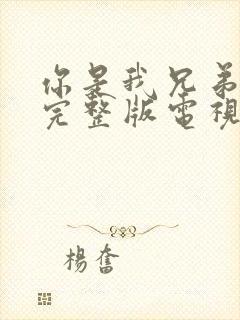 你是我兄弟
完整版電視
楊奮